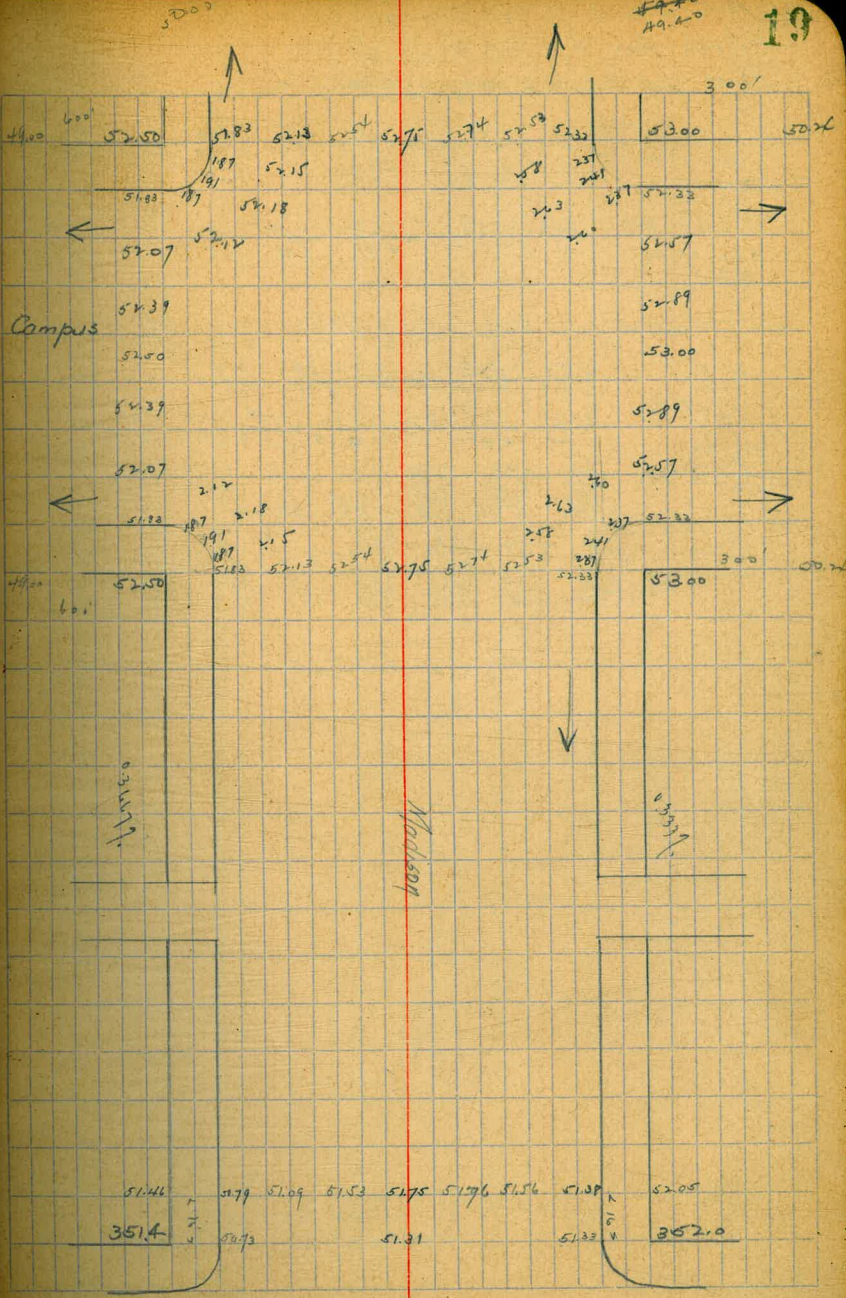 19
49.40
300'
600'
49.00 52.50 51.83 52.13 52 54 52.75 52 74 52 53 52 33 53.00
187 52.15 258 237
191 241
51.83 187 52.18 263 237 52.33
52.07 52.12 260 52.57
52.39 52.89
Campus
52.50 53.00
52.39 52 89
52.07 52.57
2.12 260
51.83 187 2.18 2.63 237 52.33
191 2.15 258 241
187 237
51.83 52.13 52 54 52.75 52 74 52 53 52.33 300'
49.00 52.50 53.00
600'
Madison
51.46 51.09 51.53 51.75 51.76 51.56 51.38 52.05
351.4 50.73 51.31 51.33 352.0